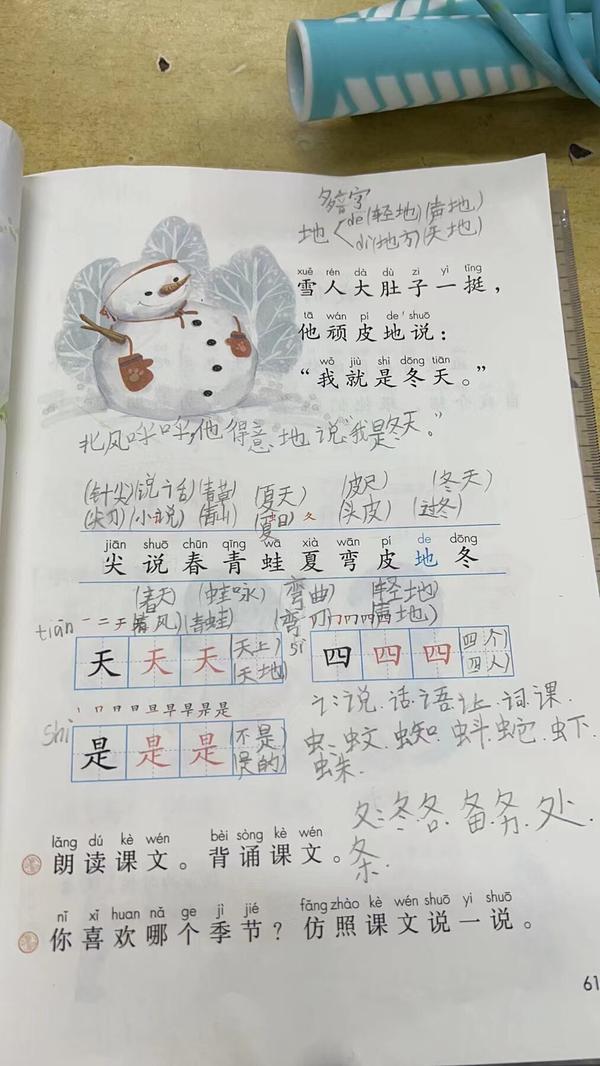 多音字
地 de(轻地)(声地)
di(地方)(天地)
xuě rén dà dù zi yì tǐng
雪人大肚子一挺，
tā wán pí de shuō
他顽皮地说：
wǒ jiù shì dōng tiān
“我就是冬天。”
北风呼呼,他得意地说“我是冬天。”
(针尖)(说话)(青草)(夏天)(皮尺)(冬天)
(尖刀)(小说)(青山)(夏日)夂(头皮)(过冬)
jiān shuō chūn qīng wā xià wān pí de dōng
尖说春青蛙夏弯皮地冬
(春天)(蛙泳)(弯曲)(轻地)
(春风)(青蛙)(弯刀)(声地)
tiān 一 二 于 天
sì
天天天(天上)
(天地)
四四四(四个)
(四人)
shì 丨 口 日 日 旦 早 早 昻 是
是是是(不是)
(是的)
讠:说.话.语.让.词.课.
虫:蚊.蜘.蚪.蛇.虾.
蛛.
夂:冬.各.备.务.处.
条.
lǎng dú kè wén bèi sòng kè wén
朗读课文。背诵课文。
nǐ xǐ huan nǎ ge jì jié fǎng zhào kè wén shuō yi shuō
你喜欢哪个季节？仿照课文说一说。
61